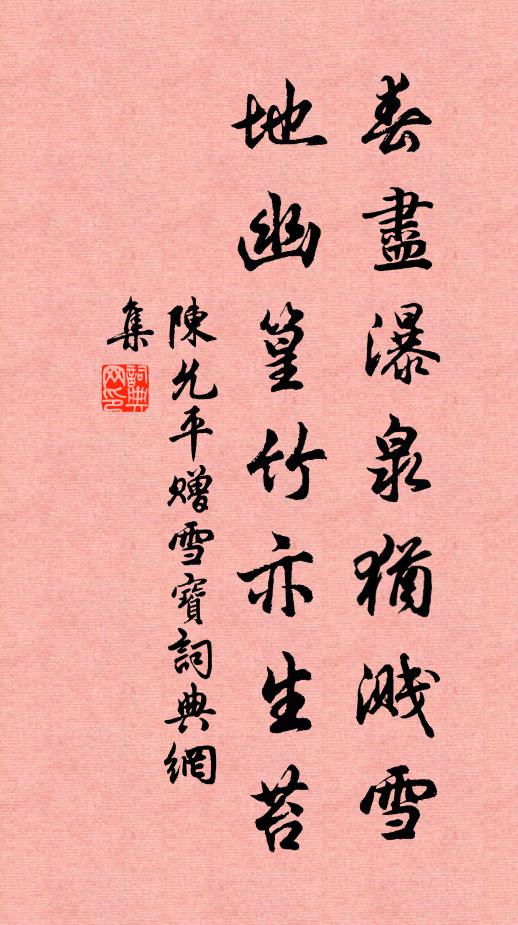 春盡瀑泉猶濺雪
地幽篁竹亦生苔
陳允平赠雪寶詞典網
集
詞典網印